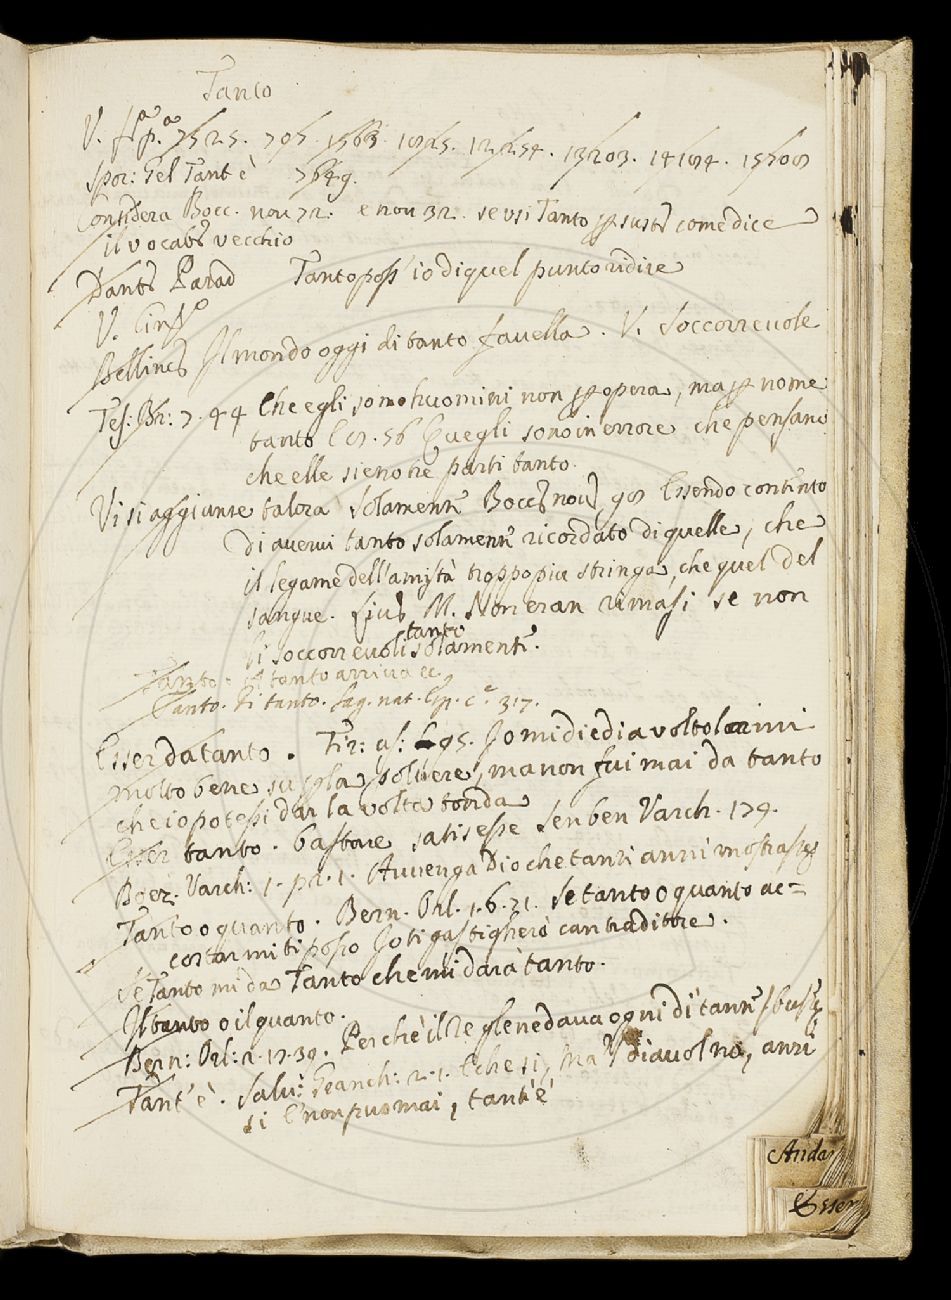 Tanto
V.
Spor: Gel Tant'è 7649.
Considera Bocc. nov 72. e nov 32. se vsi Tanto sust come dice
il vocab vecchio
Dante Parad Tanto poss'io di quel punto ridire
V.
Bellinc Il mondo oggi di tanto favella. V. Soccorrevole
Tes: Br: 7.44 Che egli sono huomini non per opera, ma per nome
tanto E 56 Quegli sono in errore che pensano
che elle sieno tre parti tanto.
Vi si aggiunse talora Solamente Bocc nov 98 Essendo contento
di avervi tanto solamente ricordato di quelle, che
il legame dell'amistà troppo piu stringa, che quel del
sangue. Liv M. Non eran rimasi se non
li soccorrevoli tanto solamente.
Tanto. A tanto arriva ec.
Tanto. Di tanto. Sag. nat. Esp. c. 317.
Esser da tanto. Fir: as: 95. Io mi diedi a voltolarmi
molto bene su per la polvere, ma non fui mai da tanto
che io potessi dar la volta tonda
Esser tanto. bastare satis esse Sen ben Varch. 179.
Boez. Varch: 1. pr. 1. Avvenga Dio che tanti anni
Tanto o quanto. Bern. Orl. 1.6.21. se tanto o quanto ac=
costar mi ti posso Io ti gastigherò can traditore.
se Tanto mi da Tanto che mi darà tanto.
Il tanto o il quanto.
Bern: Orl: 2.17.39. Perchè il Re gle ne dava ogni dì tante
Tant'è. Salv: Granch: 2.1. E che si, Ma diavol no, anzi
si E' non può mai, tant'è
Andar
Esser